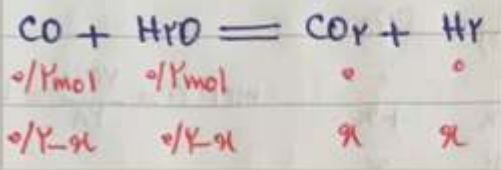 CO + H۲O = CO۲ + H۲
۰/۲mol ۰/۲mol ۰ ۰
۰/۲-x ۰/۲-x x x